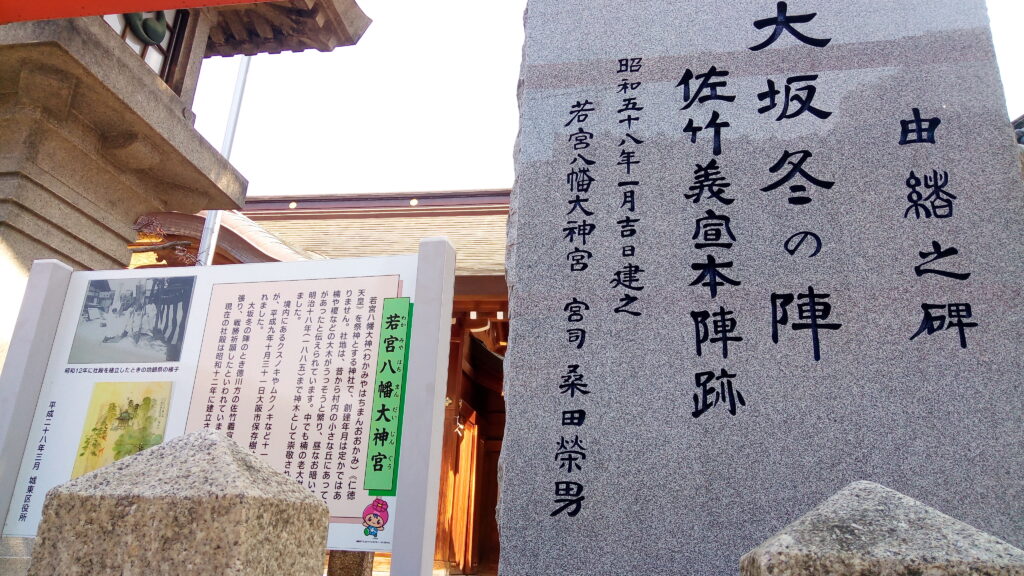 由緒之碑
大坂冬の陣
佐竹義宣本陣跡
昭和五十八年一月吉日建之
若宮八幡大神宮 宮司 桑田榮男
若宮八幡大神宮
わか みや はち まん だい じん ぐう
若宮八幡大神(わかみやはちまんおおかみ)《仁徳
天皇》を祭神とする神社で、創建年月は定かではあ
りません。社地は、昔から村内の小さな丘にあって、
楠や榎などの大木がうっそうと繁り、昼なお暗い
があったと伝えられています。中でも楠の老大
明治十八年(一八八五)まで神木として崇敬され
ました。
境内にあるクスノキやムクノキなど十一
が、平成九年十月三十一日大阪市保存樹
れました。
大坂冬の陣のとき徳川方の佐竹義宣
張り、戦勝祈願したといわれていま
現在の社殿は昭和十二年に建立さ
昭和12年に社殿を建立したときの地鎮祭の様子
平成二十八年三月 城東区役所